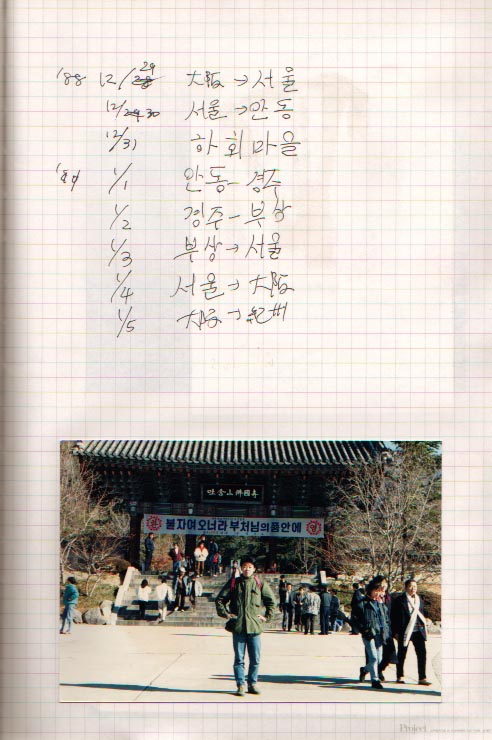 '88 12/29 大阪→서울
12/30 서울→안동
12/31 하회마을
'89 1/1 안동-경주
1/2 경주-부상
1/3 부상→서울
1/4 서울→大阪
1/5 大阪→紀州
吐含山佛國寺
불자여 오너라 부처님의 품안에
Project